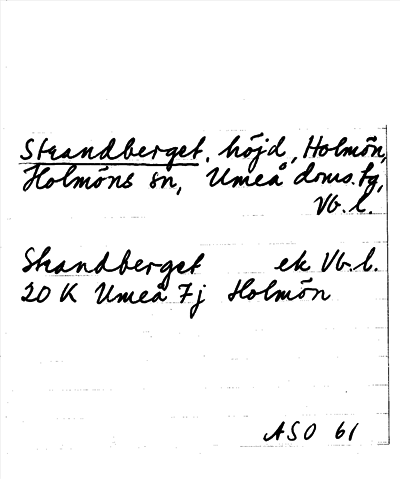 Strandberget, höjd, Holmön,
Holmöns sn, Umeå doms.tg,
Vb.l.
Strandberget ek Vb.l.
20 K Umeå 7j Holmön
ASO 61